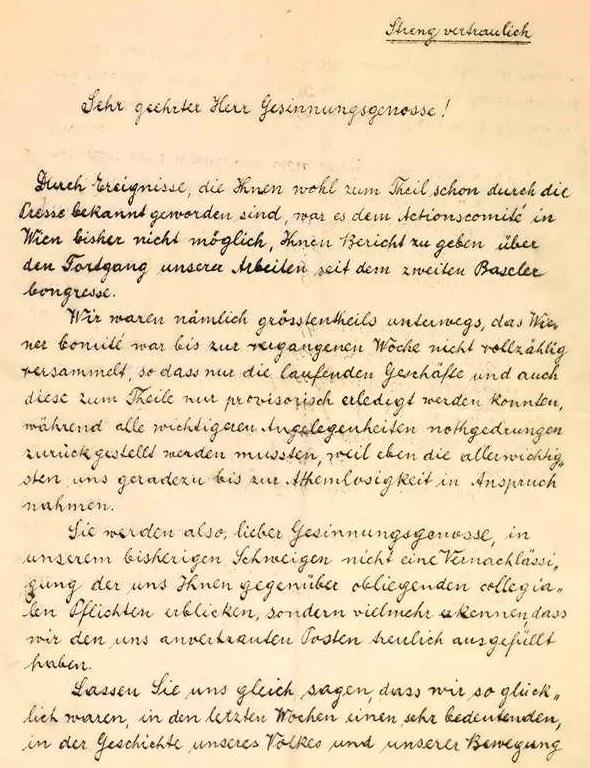 Streng vertraulich
Sehr geehrter Herr Gesinnungsgenosse!
Durch Ereignisse, die Ihnen wohl zum Theil schon durch die
Presse bekannt geworden sind, war es dem Actionscomité in
Wien bisher nicht möglich, Ihnen Bericht zu geben über
den Fortgang unserer Arbeiten seit dem zweiten Baseler
Congresse.
Wir waren nämlich grösstentheils unterwegs, das Wie-
ner Comité war bis zur vergangenen Woche nicht vollzählig
versammelt, so dass nur die laufenden Geschäfte und auch
diese zum Theile nur provisorisch erledigt werden konnten,
während alle wichtigeren Angelegenheiten nothgedrungen
zurückgestellt werden mussten, weil eben die allerwichtig„
sten uns geradezu bis zur Athemlosigkeit in Anspruch
nahmen.
Sie werden also, lieber Gesinnungsgenosse, in
unserem bisherigen Schweigen nicht eine Vernachlässi„
gung der uns Ihnen gegenüber obliegenden collegia„
len Pflichten erblicken, sondern vielmehr erkennen, dass
wir den uns anvertrauten Posten treulich ausgefüllt
haben.
Lassen Sie uns gleich sagen, dass wir so glück„
lich waren, in den letzten Wochen einen sehr bedeutenden,
in der Geschichte unseres Volkes und unserer Bewegung